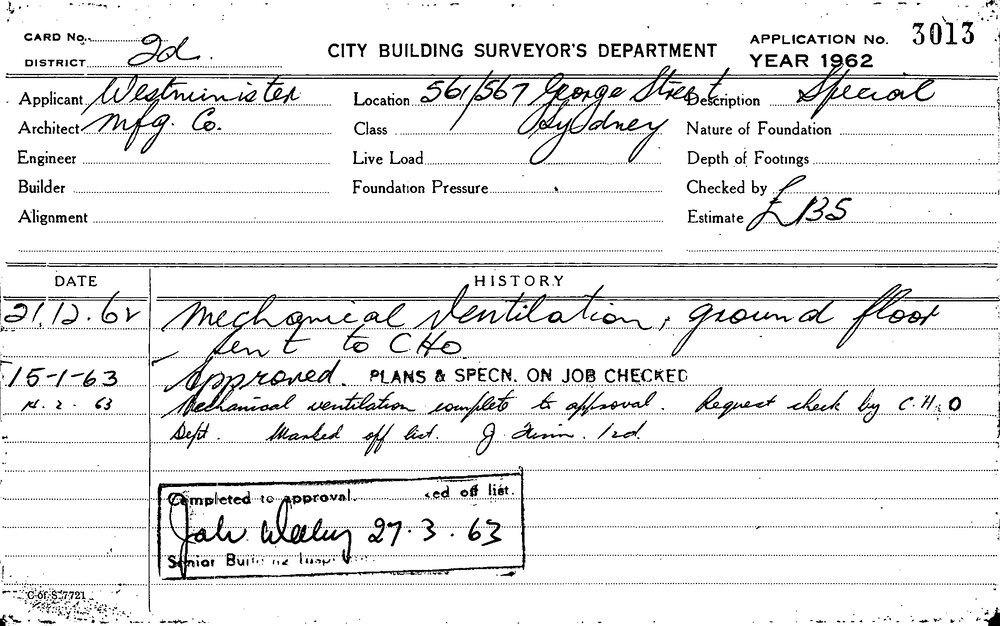 CARD No.
DISTRICT 2d.
CITY BUILDING SURVEYOR'S DEPARTMENT
APPLICATION No. 3013
YEAR 1962
Applicant Westminister
Location 561/567 George Street
Description Special
Architect Mfg. Co.
Class Sydney
Nature of Foundation
Engineer
Live Load
Depth of Footings
Builder
Foundation Pressure
Checked by
Alignment
Estimate £135
DATE
HISTORY
21.12.62 Mechanical Ventilation, ground floor
sent to CHO
15-1-63 Approved. PLANS & SPECN. ON JOB CHECKED
14.2.63 Mechanical ventilation complete to approval. Request check by C.H.O
Dept. Marked off list. J.
Completed to approval. ked off list.
27.3.63
Senior Building Insp
C of S 7721